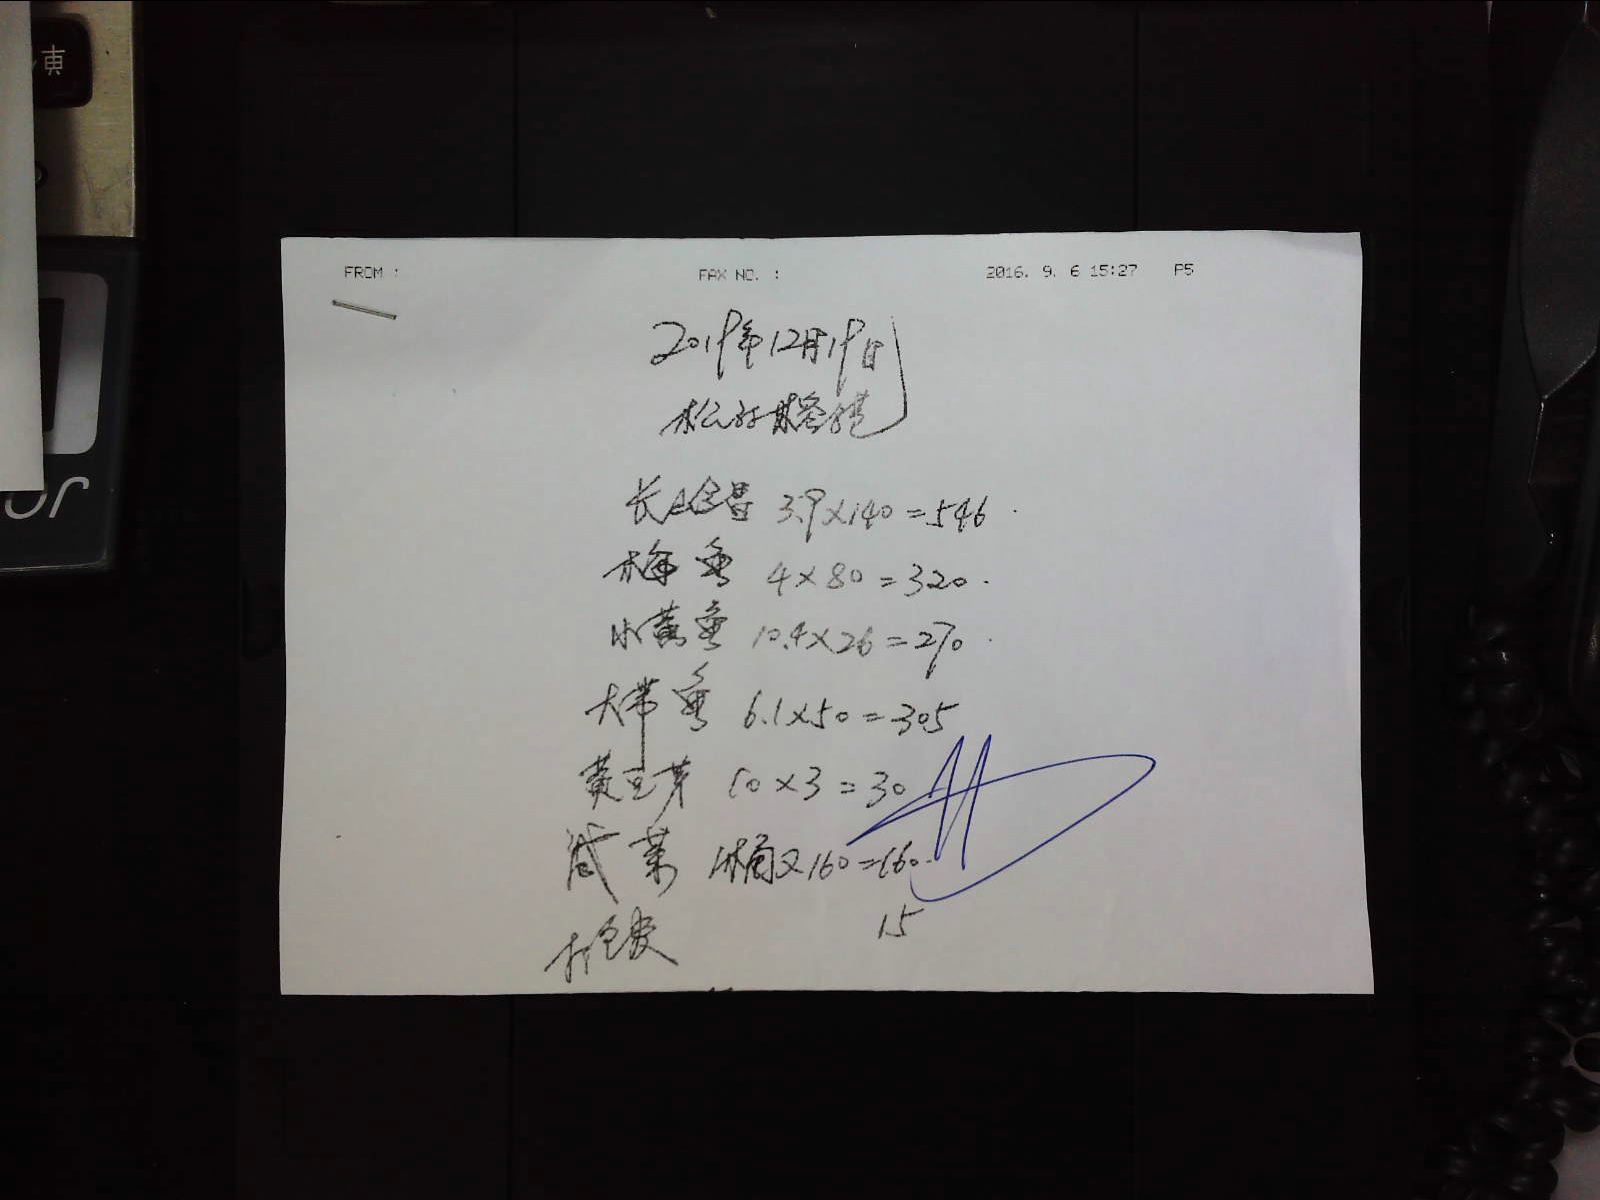 FROM : FAX NO. : 2016. 9. 6 15:27 P5
2019年12月19日
长 3.9×140=546
梅鱼 4×80=320
小黄鱼 10.4×26=270
大带鱼 6.1×50=305
黄豆芽 10×3=30
咸菜 桶×160=160
15